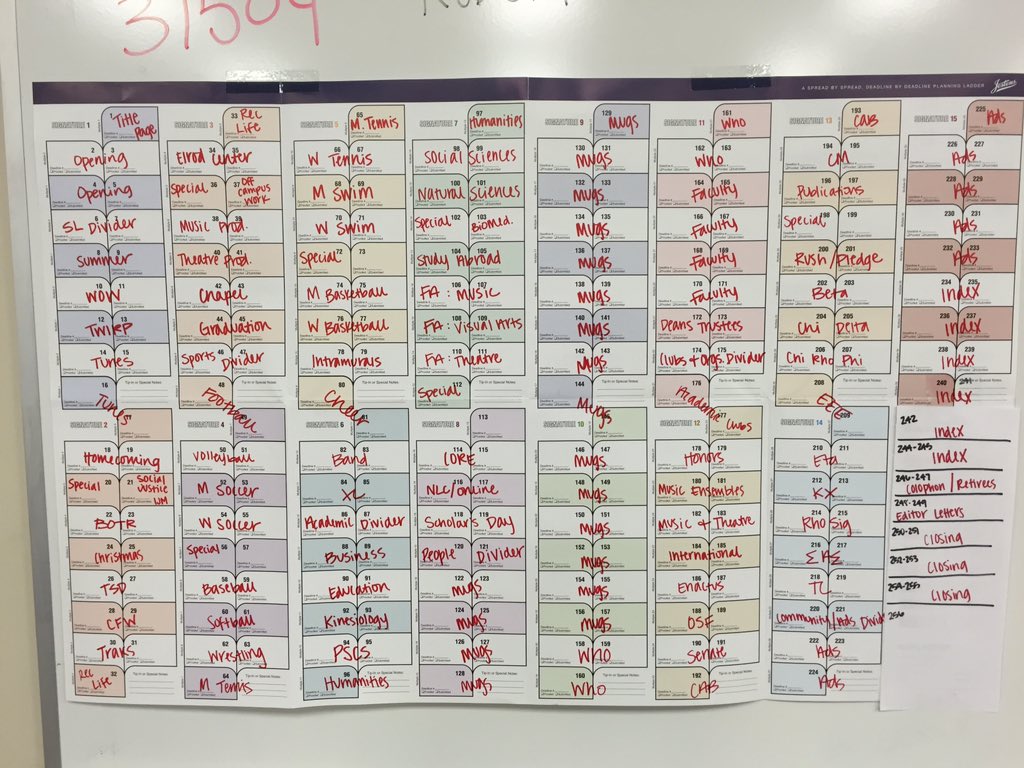 31509
A SPREAD BY SPREAD, DEADLINE BY DEADLINE PLANNING LADDER
Jostens
SIGNATURE 1
1 Title Page
2 3 Opening
4 5 Opening
6 7 SL Divider
8 9 Summer
10 11 WOW
12 13 TWIRP
14 15 Tunes
16 Tunes
SIGNATURE 2
17
18 19 Homecoming
20 21 Special Social Justice
22 23 BOTR
24 25 Christmas
26 27 TSD
28 29 CFW
30 31 Traks
32 Rec Life
SIGNATURE 3
33 Rec Life
34 35 Elrod Center
36 37 Special Off campus work
38 39 Music Prod.
40 41 Theatre Prod.
42 43 Chapel
44 45 Graduation
46 47 Sports Divider
48 Football
SIGNATURE 4
49
50 51 Volleyball
52 53 M Soccer
54 55 W Soccer
56 57 Special
58 59 Baseball
60 61 Softball
62 63 Wrestling
64 M Tennis
SIGNATURE 5
65 M. Tennis
66 67 W Tennis
68 69 M Swim
70 71 W Swim
72 73 Special
74 75 M Basketball
76 77 W Basketball
78 79 Intramurals
80 Cheer
SIGNATURE 6
81
82 83 Band
84 85 XC
86 87 Academic Divider
88 89 Business
90 91 Education
92 93 Kinesiology
94 95 PSCS
96 Humanities
SIGNATURE 7
97 Humanities
98 99 Social Sciences
100 101 Natural Sciences
102 103 Special Biomed.
104 105 Study Abroad
106 107 FA: Music
108 109 FA: Visual Arts
110 111 FA: Theatre
112 Special
SIGNATURE 8
113
114 115 CORE
116 117 NLC/online
118 119 Scholars Day
120 121 People Divider
122 123 Mugs
124 125 Mugs
126 127 Mugs
128 Mugs
SIGNATURE 9
129 Mugs
130 131 Mugs
132 133 Mugs
134 135 Mugs
136 137 Mugs
138 139 Mugs
140 141 Mugs
142 143 Mugs
144 Mugs
SIGNATURE 10
145
146 147 Mugs
148 149 Mugs
150 151 Mugs
152 153 Mugs
154 155 Mugs
156 157 Mugs
158 159 Who
160 Who
SIGNATURE 11
161 Who
162 163 Who
164 165 Faculty
166 167 Faculty
168 169 Faculty
170 171 Faculty
172 173 Deans Trustees
174 175 Clubs + Orgs. Divider
176 Academic Clubs
SIGNATURE 12
177
178 179 Honors
180 181 Music Ensembles
182 183 Music + Theatre
184 185 International
186 187 Enactus
188 189 OSF
190 191 Senate
192 CAB
SIGNATURE 13
193 CAB
194 195 CM
196 197 Publications
198 199 Special
200 201 Rush/Pledge
202 203 Beta
204 205 Chi Delta
206 207 Chi Rho Phi
208 EEE
SIGNATURE 14
209
210 211 Eta
212 213 KX
214 215 Rho Sig
216 217
218 219 TL
220 221 Community/Ads Divider
222 223 Ads
224 Ads
SIGNATURE 15
225 Ads
226 227 Ads
228 229 Ads
230 231 Ads
232 233 Ads
234 235 Index
236 237 Index
238 239 Index
240 241 Index
242 Index
244-245 Index
246-247 Colophon/Retirees
248-249 Editor Letters
250-251 Closing
252-253 Closing
254-255 Closing
256